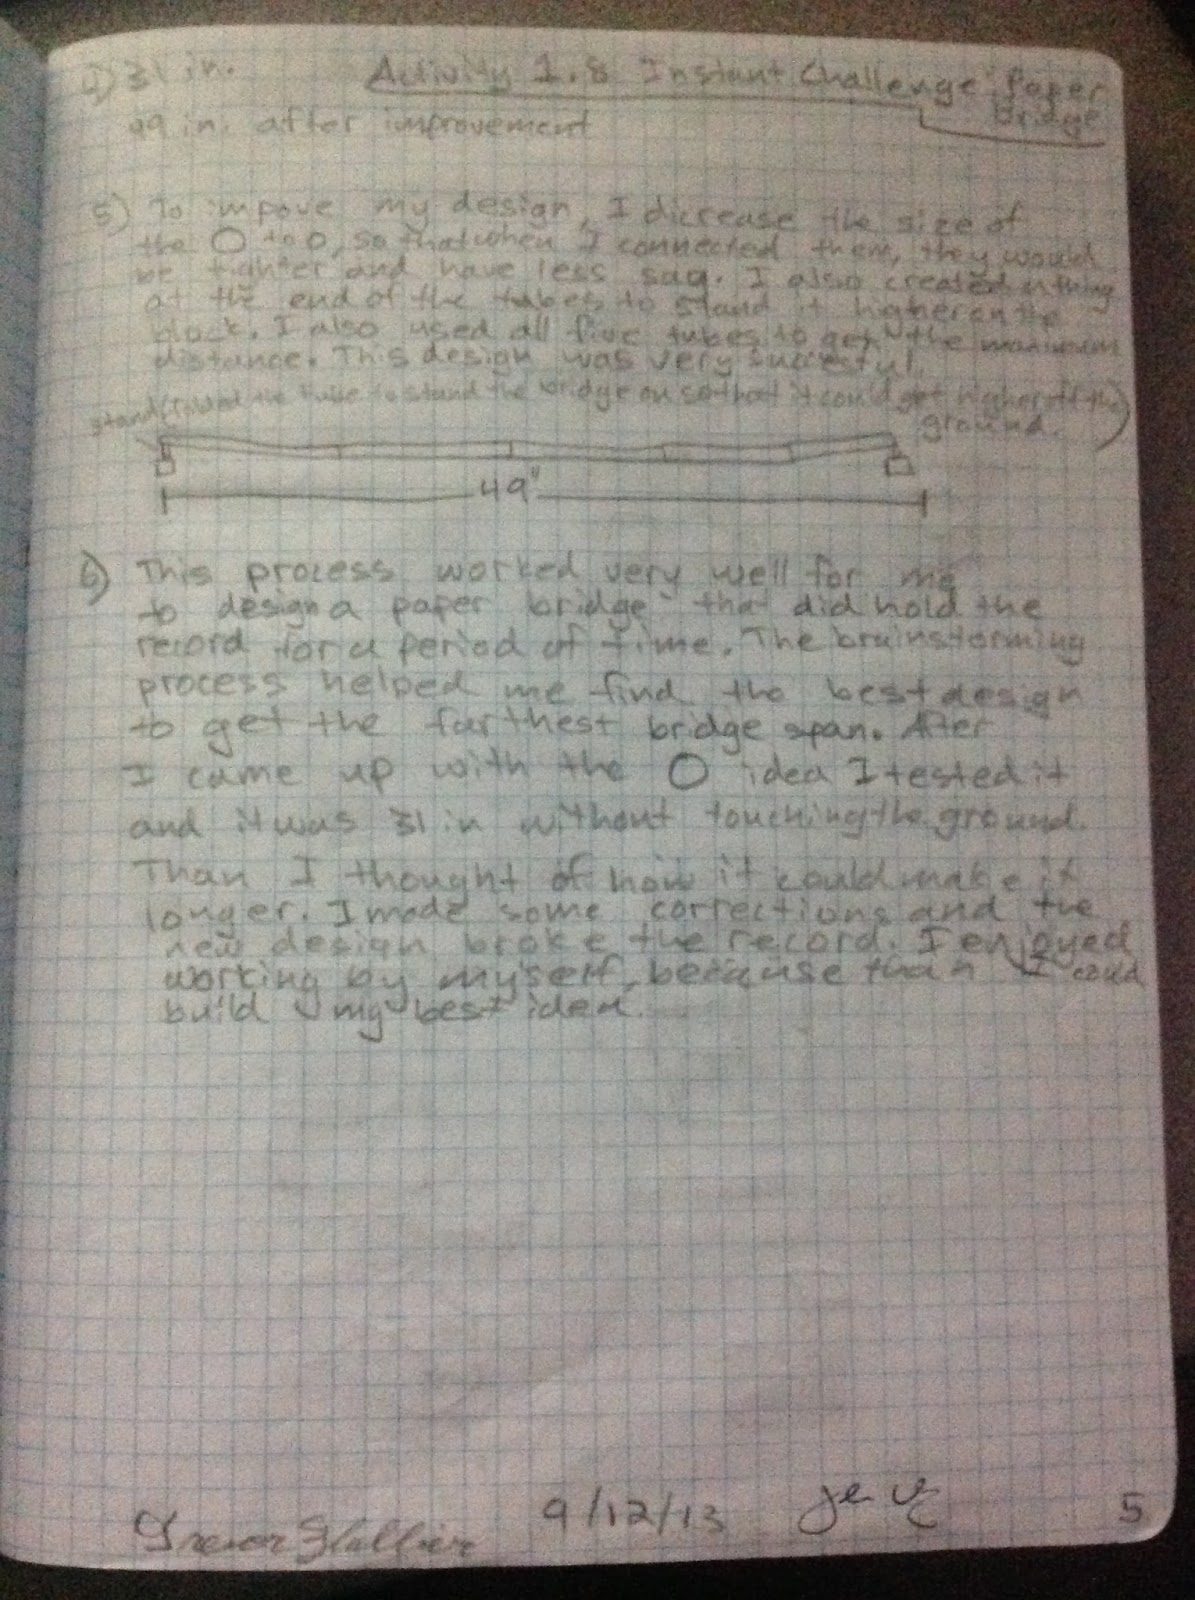 4) 31 in. Activity 1.8 Instant Challenge: Paper
Bridge
49 in. after improvement
5) To impove my design, I dicrease the size of
the O to o, so that when I connected them, they would
be tighter and have less sag. I also created a thing
at the end of the tubes to stand it higher on the
block. I also used all five tubes to get the maximum
distance. This design was very succesful.
stand (folded the tube to stand the bridge on so that it could get higher off the
ground.)
49"
6) This process worked very well for me
to design a paper bridge that did hold the
record for a period of time. The brainstorming
process helped me find the best design
to get the farthest bridge span. After
I came up with the O idea I tested it
and it was 31 in without touching the ground.
Than I thought of how it could make it
longer. I made some corrections and the
new design broke the record. I enjoyed
working by myself, because than I coud
build my best idea.
Trevor 9/12/13 5